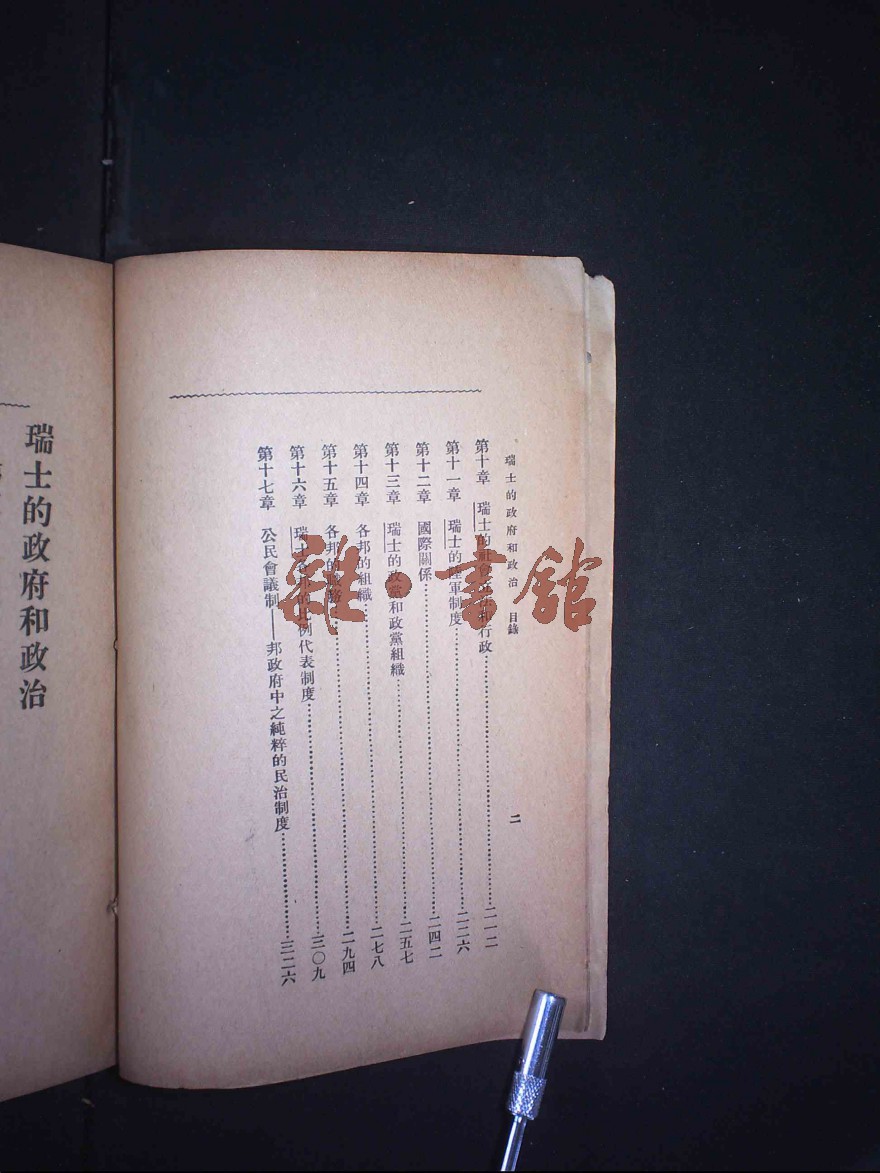 瑞士的政府和政治 目錄 二
第十章 瑞士的社會立法和行政……二一二
第十一章 瑞士的陸軍制度……二二六
第十二章 國際關係……二四二
第十三章 瑞士的政黨和政黨組織……二五七
第十四章 各邦的組織……二七八
第十五章 各邦的職務……二九四
第十六章 瑞士各邦的比例代表制度……三〇九
第十七章 公民會議制——邦政府中之純粹的民治制度……三二六
瑞士的政府和政治
雜·書館